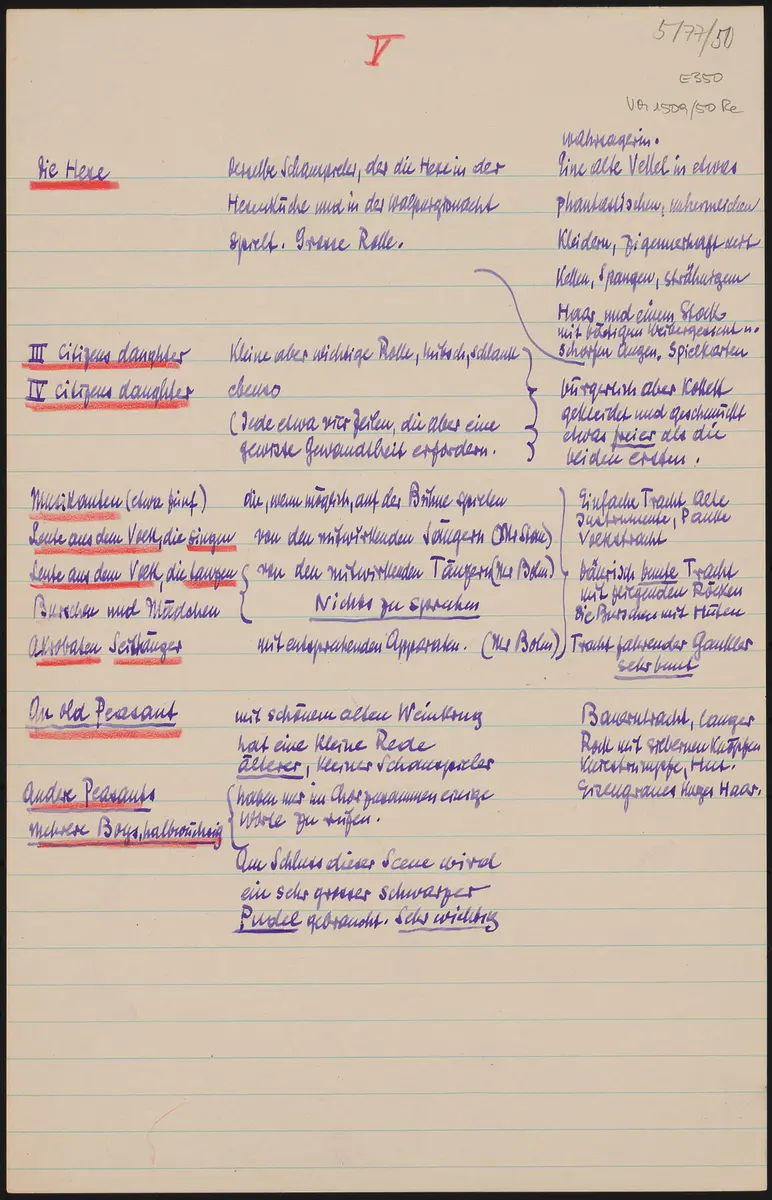 V
5/77/50
E350
VM 1509/50 Re
Die Hexe
derselbe Schauspieler, der die Hexe in der
Hexenküche und in der Walpurgisnacht
spielt. Grosse Rolle.
wahrsagerin.
Eine alte Vettel in etwas
phantastischen, unheimlichen
Kleidern, zigeunerhaft mit
Ketten, Spangen, strähnigem
Haar und einem Stock
mit bärtigem Weibergesicht u.
scharfen Augen, Spielkarten
III Citizens daughter
Kleine aber wichtige Rolle, hübsch, schlank
IV Citizens daughter
ebenso
(Jede etwa vier Zeilen, die aber eine
gewisse Gewandtheit erfordern.
bürgerlich aber kokett
gekleidet und geschmückt
etwas freier als die
beiden ersten.
Musikanten (etwa fünf)
die, wenn möglich, auf der Bühne spielen
Einfache Tracht alte
Instrumente, Pauke
Leute aus dem Volk, die singen
von den mitwirkenden Sängern
Volkstracht
Leute aus dem Volk, die tanzen
von den mitwirkenden Tänzern (Mr Bolm)
bäurisch bunte Tracht
mit fliegenden Röcken
Burschen und Mädchen
Nichts zu sprechen
die Burschen mit Hüten
Akrobaten Seiltänzer
mit entsprechenden Apparaten. (Mr Bolm)
Tracht fahrender Gaukler
sehr bunt
An old Peasant
mit schönem alten Weinkrug
hat eine kleine Rede
älterer, kleiner Schauspieler
Bauerntracht, langer
Rock mit silbernen Knöpfen
Kniestrümpfe, Hut.
Eisengraues kurzes Haar.
Andere Peasants
mehrere Boys, halbwüchsig
haben nur im Chor zusammen einige
Worte zu rufen.
Am Schluss dieser Scene wird
ein sehr grosser schwarzer
Pudel gebraucht. Sehr wichtig